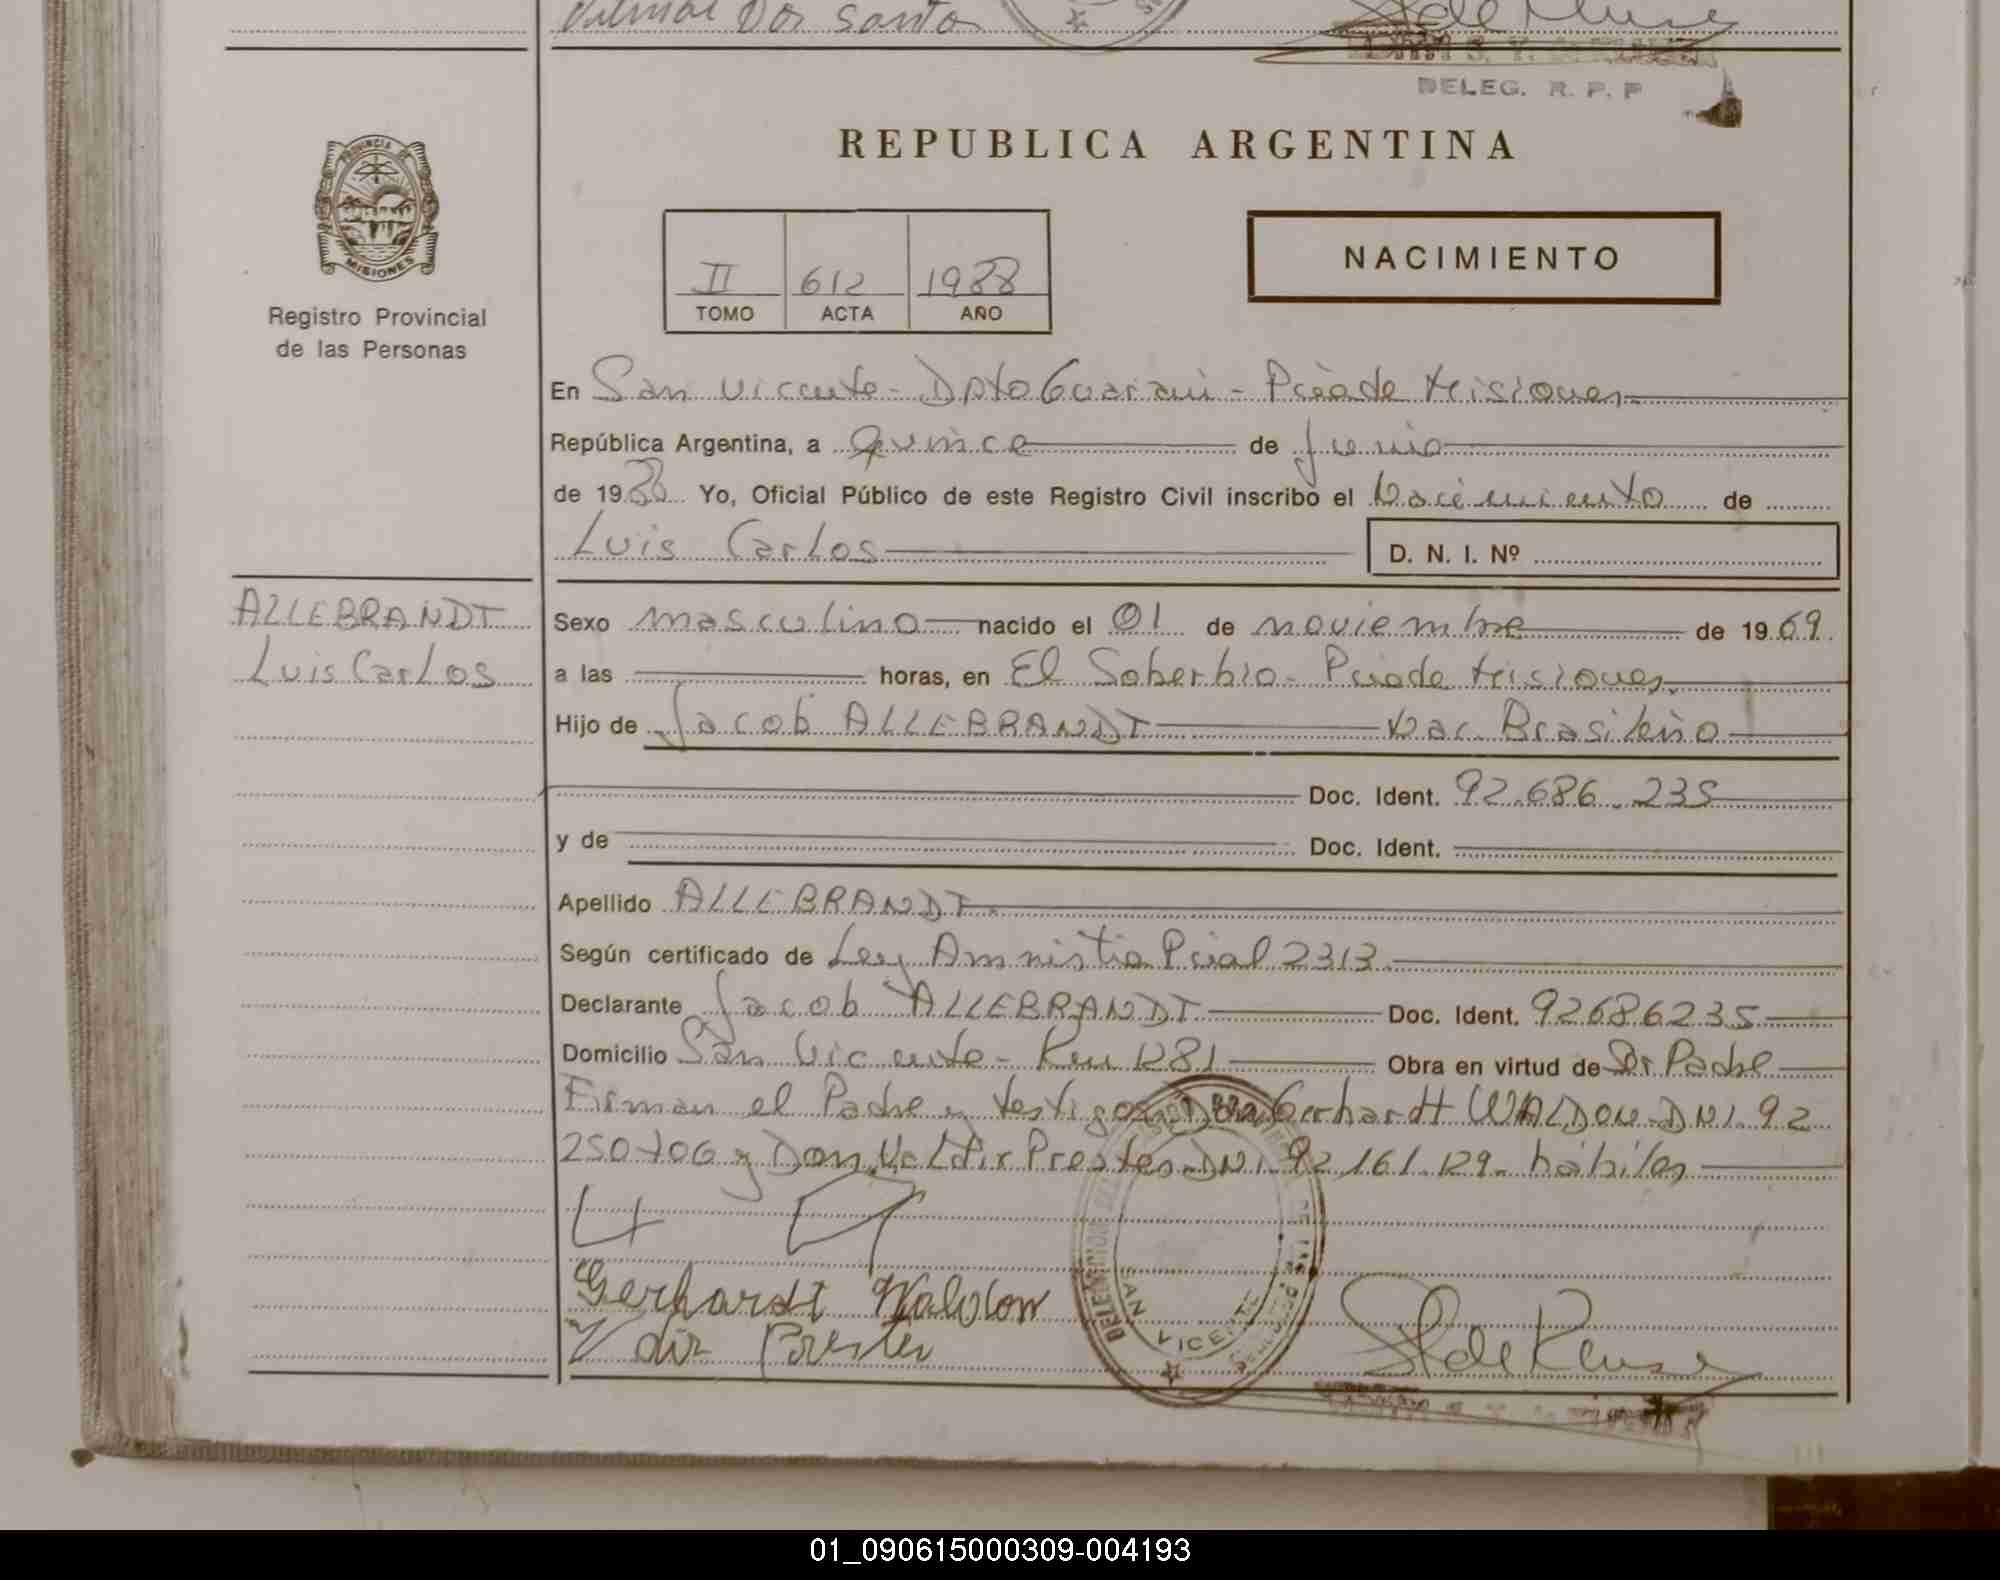 Dos Santos
DELEG. R. P. P
REPUBLICA ARGENTINA
PROVINCIA DE
MISIONES
Registro Provincial
de las Personas
II 612 1988
TOMO ACTA AÑO
NACIMIENTO
En San Vicente - Dpto Guarani - Pciade Misiones
República Argentina, a Quince de junio
de 1988 Yo, Oficial Público de este Registro Civil inscribo el Nacimiento de
Luis Carlos D. N. I. Nº
ALLEBRANDT
Luis Carlos
Sexo masculino nacido el 01 de noviembre de 1969
a las horas, en El Soberbio - Pciade Misiones
Hijo de Jacob ALLEBRANDT Nac. Brasileño
Doc. Ident. 92.686.235
y de Doc. Ident.
Apellido ALLEBRANDT.
Según certificado de Ley Amnistia Pcial 2313
Declarante Jacob ALLEBRANDT Doc. Ident. 92686235
Domicilio San Vicente - Km 1281 Obra en virtud de Ser Padre
Firman el Padre y testigos Don Gerhardt WALDOW DNI. 92
250706 y Don Valdir Prestes DNI. 92.161.129 - hábiles
Gerhardt Waldow
SAN VICENTE
01_090615000309-004193